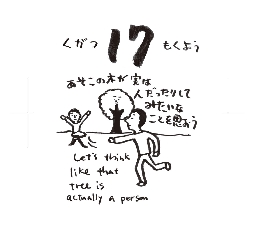 くがつ 17 もくよう
あそこの木が実は
人だったりして
みたいな
ことを思おう
Let's think
like that
tree is
actually a person